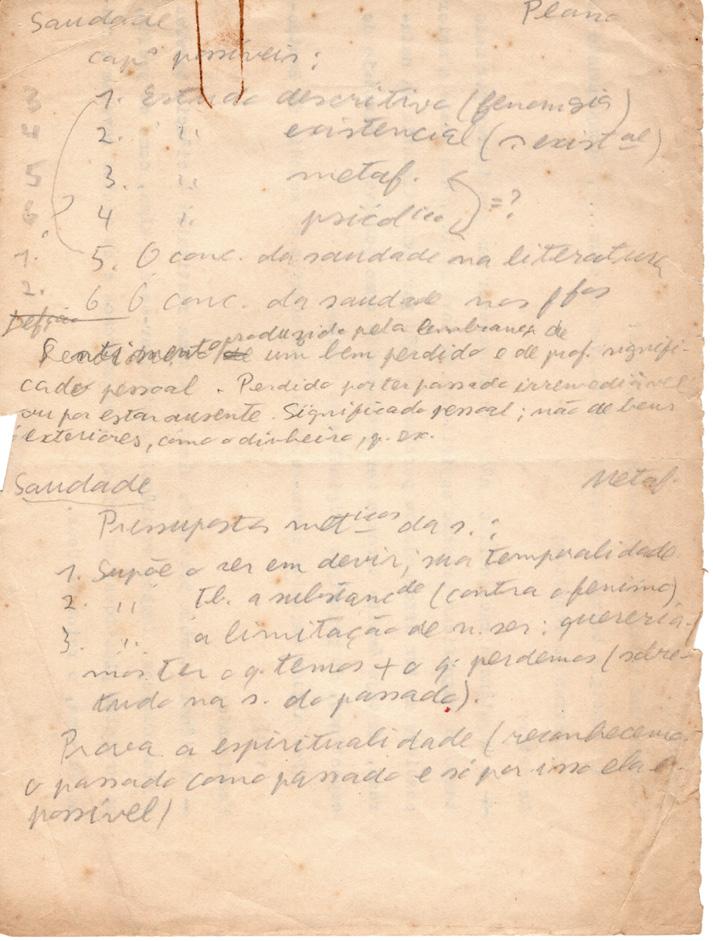 Saudade Plano
capºs possíveis:
3 1. Estudo descritivo (fenomgia)
4 2. " existencial (existal)
5 3. " metaf.
6 ? 4 " psicólico =?
1. 5. O conc. da saudade na literatura
2. 6 O conc. da saudade nos ffos
Sentimento produzido pela lembrança de
um bem perdido e de prof. signifi-
cado pessoal. Perdido por ter passado irremediável
ou por estar ausente. Significado pessoal; não de bens
exteriores, como o dinheiro, p. ex.
Saudade Metaf.
Pressupostos meticos da s.:
1. Supõe o ser em devir; sua temporalidade
2. " tb. a substancde (contra o fenismo)
3. " a limitação de n. ser: quería-
mos ter o q. temos + o q. perdemos (sobre-
tudo na s. do passado).
Prova a espiritualidade (reconhecemos
o passado como passado e só por isso ela é
possível)